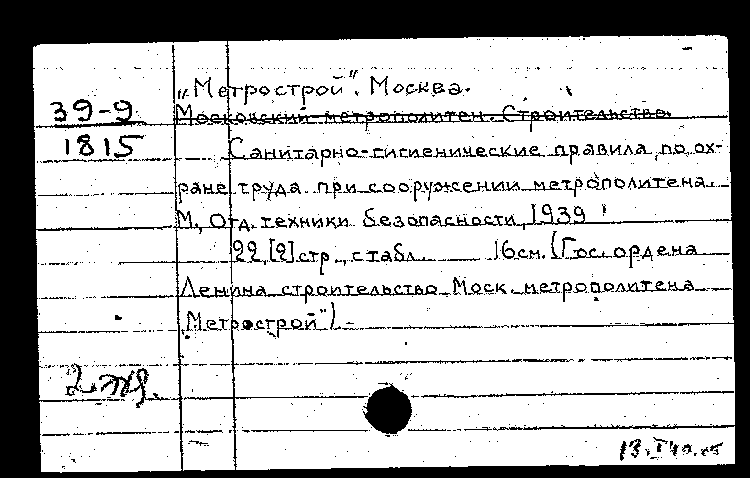 „Метрострой". Москва.
39-9
Московский метрополитен. Строительство.
1815
Санитарно-гигиенические правила по ох-
ране труда при сооружении метрополитена.
М., Отд. техники безопасности, 1939
22,[2] стр., с табл. 16 см. (Гос. ордена
Ленина строительство Моск. метрополитена
„Метрострой") –
2 экз.